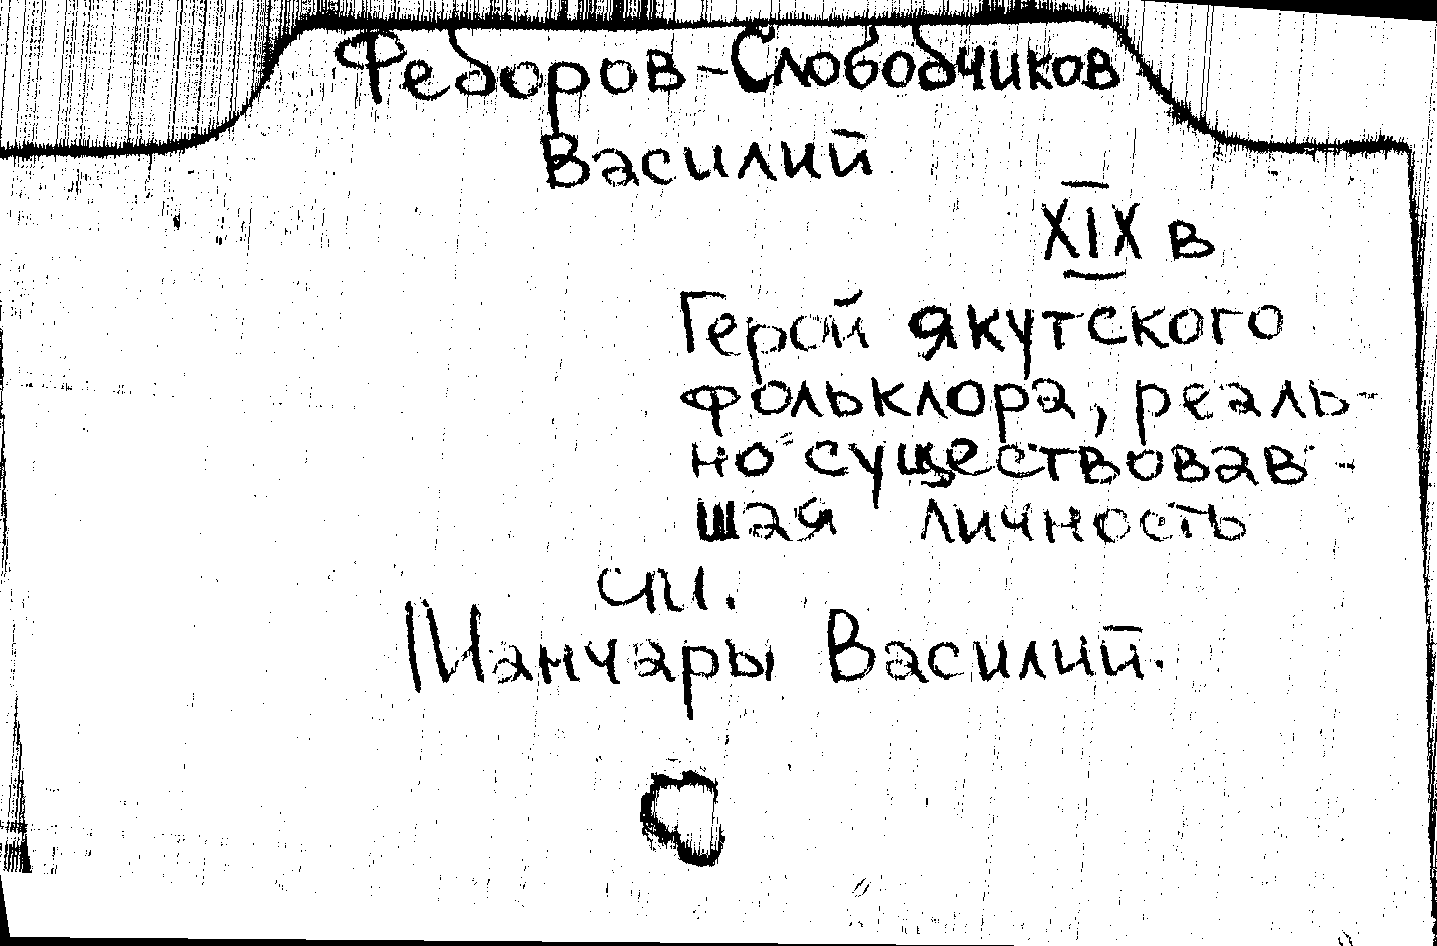 Федоров-Слободчиков
Василий
XIX в
Герой якутского
фольклора, реаль-
но существовав-
шая личность
см.
Манчары Василий.